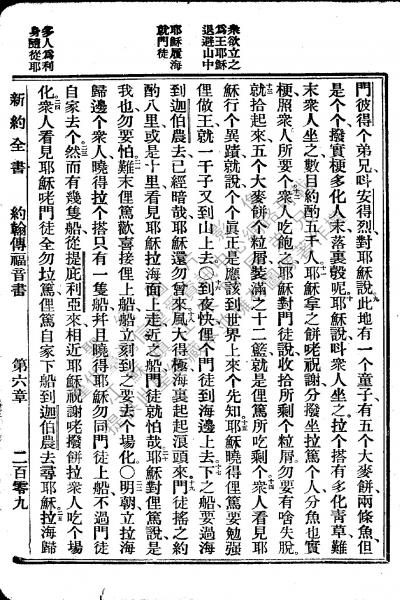 衆欲立之
爲王耶穌
退避山中
耶穌履海
就門徒
多人爲利
身隨從耶
門彼得个弟兄呌安得烈對耶穌說此地有一个童子有五个大麥餅兩條魚但
是个个撥實梗多化人末落裏彀呢耶穌說呌衆人坐之拉个搭有多化靑草難
末衆人坐之數目約酌五千人耶穌拿之餅咾祝謝分撥坐拉篤个人分魚也實
梗照衆人所要个衆人吃飽之耶穌對門徒說收拾所剩个粒屑勿要有啥失脫
就拾起來五个大麥餅个粒屑裝滿之十二籃就是俚篤所吃剩个衆人看見耶
穌行个異蹟就說个个眞正是應該到世界上來个先知耶穌曉得俚篤要勉强
俚做王就一干子又到山上去〇到夜快俚个門徒到海邊上去下之船要過海
到迦伯農去已經暗哉耶穌還勿曾來風大得極海裏起起浪頭來門徒搖之約
酌八里或是十里看見耶穌拉海面上走近之船門徒就怕哉耶穌對俚篤說是
我也勿要怕難末俚篤歡喜接俚上船船立刻到之要去个場化〇明朝立拉海
歸邊个衆人曉得拉个搭只有一隻船幷且曉得耶穌勿同門徒上船不過門徒
自家去个然而有幾隻船從提庇利亞來相近耶穌祝謝咾撥餅拉衆人吃个場
化衆人看見耶穌咾門徒全勿垃篤俚篤自家下船到迦伯農去尋耶穌拉海歸
新約全書
約翰傳福音書
第六章
二百零九